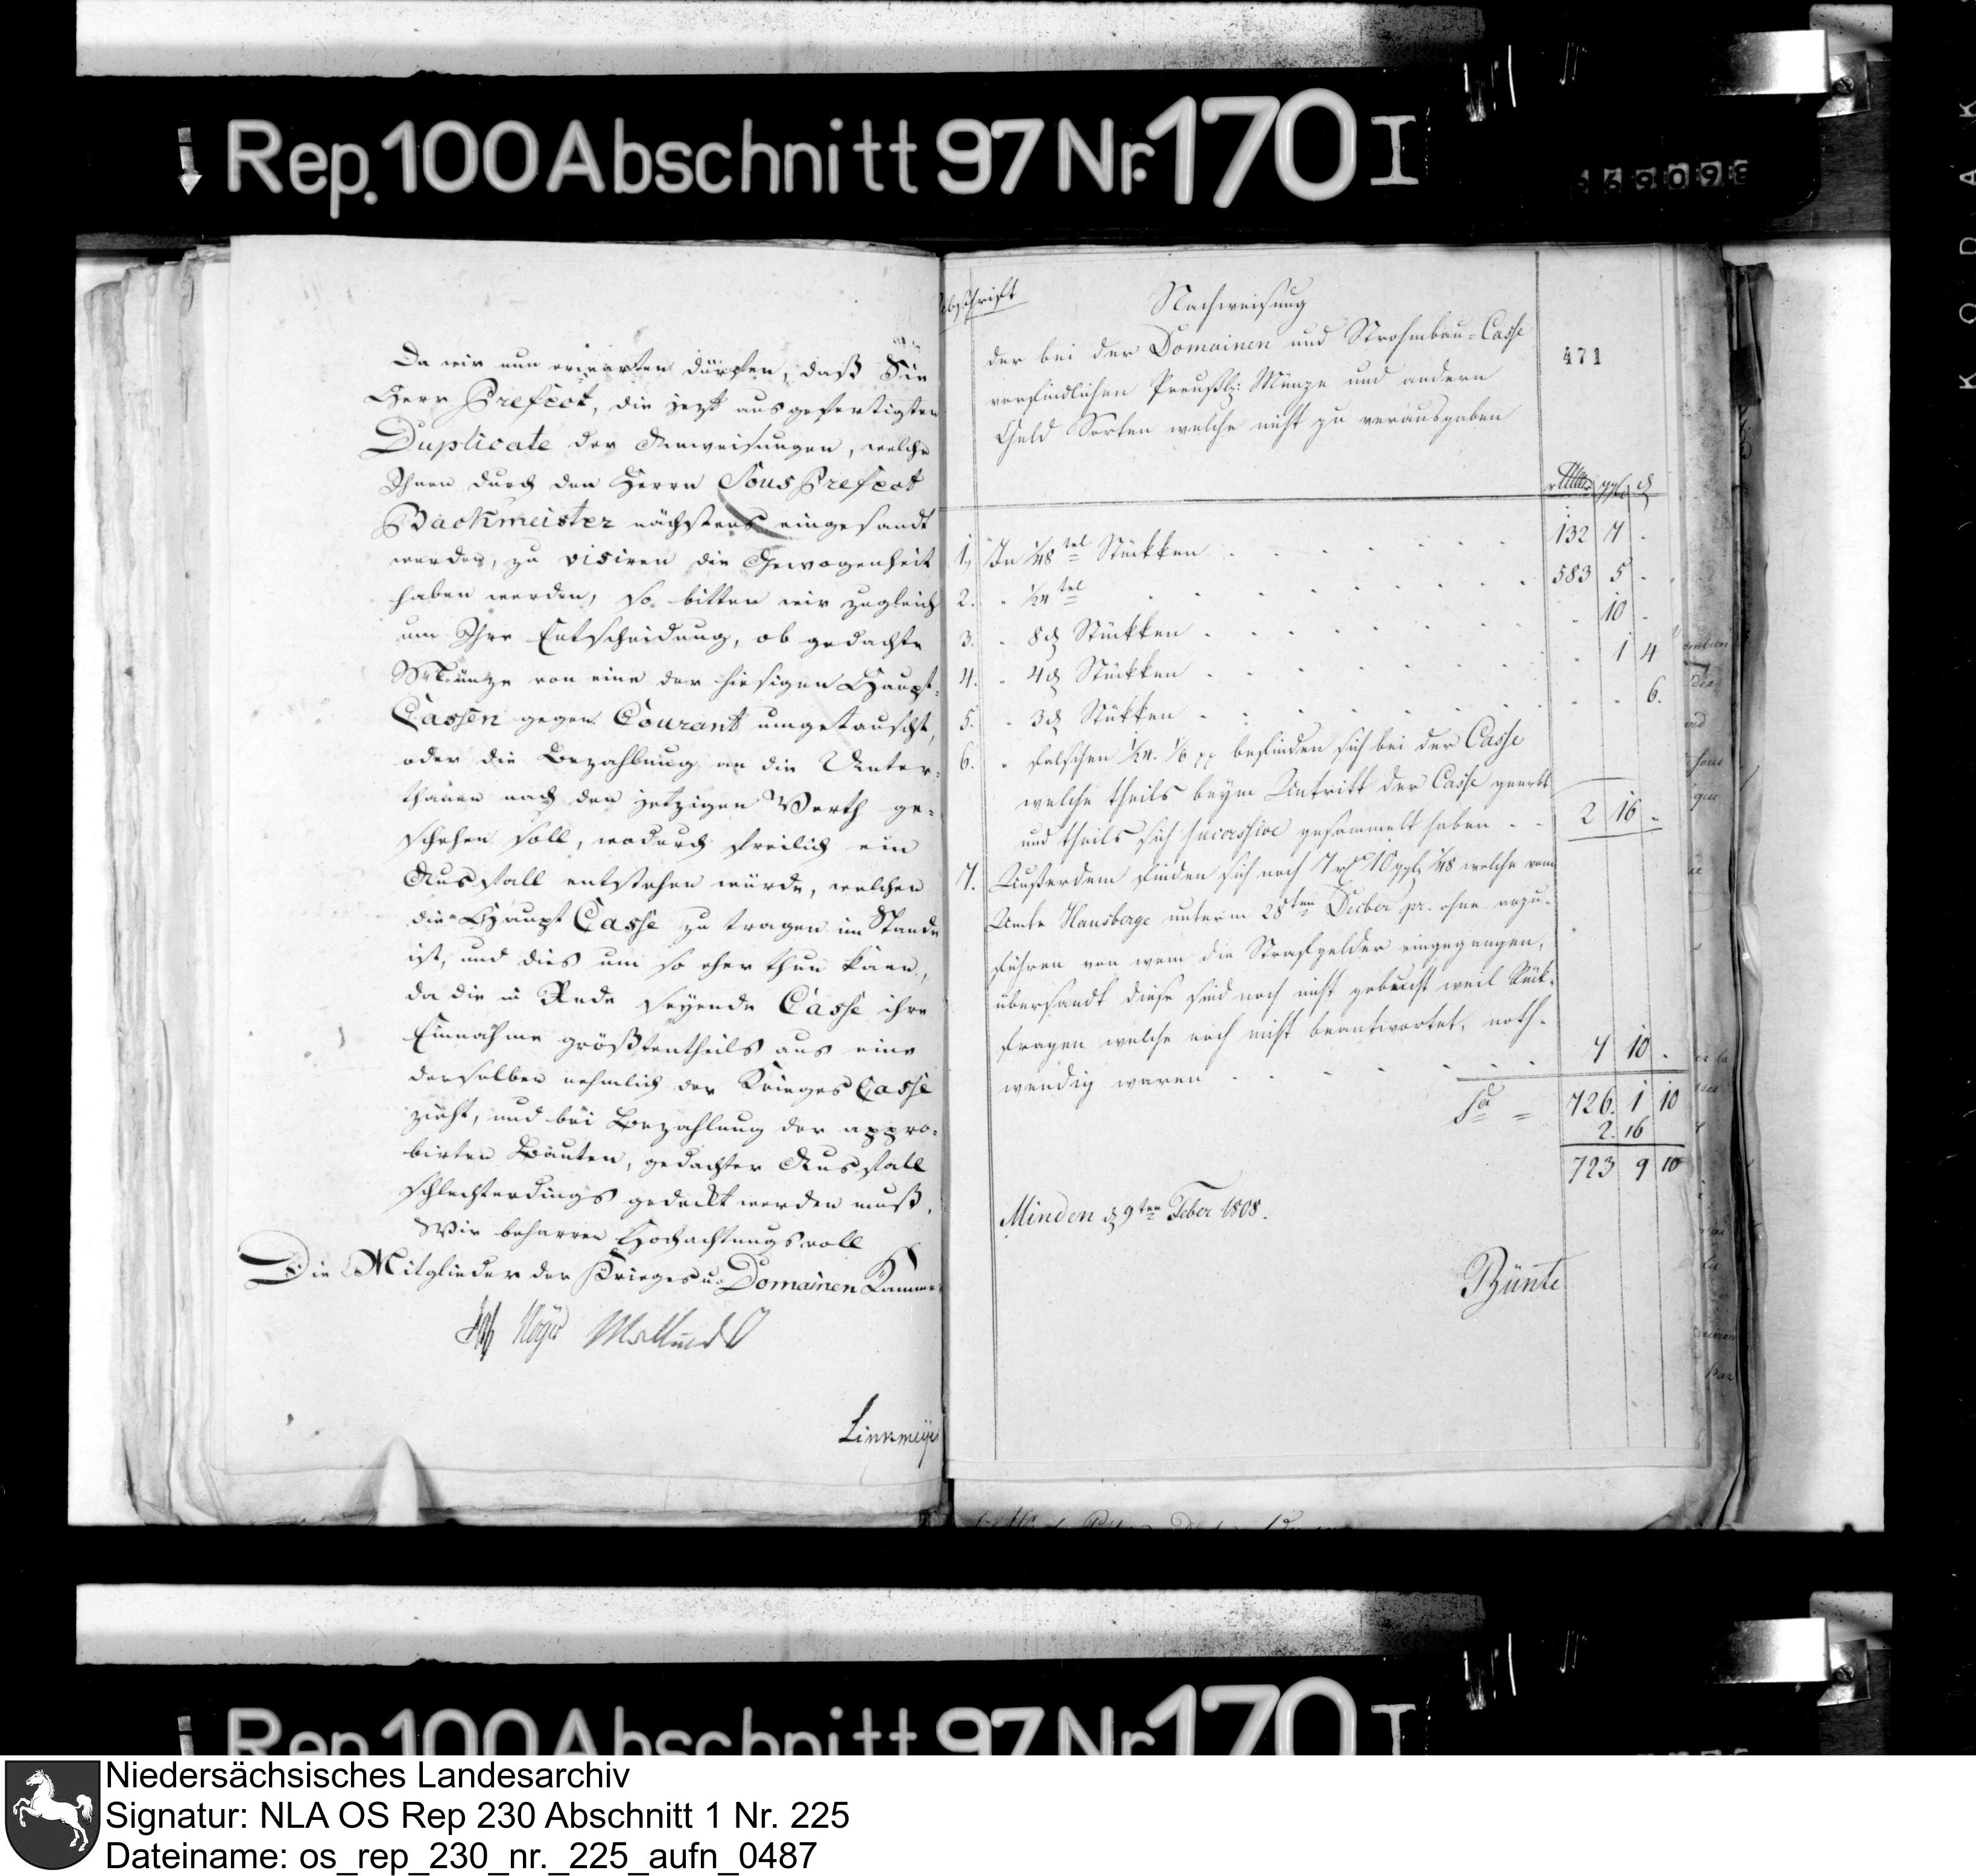 Rep. 100 Abschnitt 97 Nr. 170 I
Da wir nun erwarten dürfen, daß Sie
Herr Prefect, die jezt ausgefertigten
Duplicate der Anweisungen, welche
Ihnen durch den Herrn Sous Prefect
Backmeister nächstens eingesandt
werden, zu visiren die Gewogenheit
haben werden, so bitten wir zugleich
um Ihre Entscheidung, ob gedachte
Müntze von eine der hiesigen Haupt-
Cassen gegen Courant umgetauscht,
oder die Bezahlung an die Unter-
thanen nach den jetzigen Werth ge-
schehen soll, wodurch freilich ein
Ausfall entstehen würde, welchen
die Haupt Casse zu tragen im Stande
ist, und dies um so eher thun kann,
da die in Rede seyende Casse ihre
Einnahme größtentheils aus eine
derselben nehmlich der Krieges Casse
zieht, und bei Bezahlung der appro-
birten Bauten, gedachter Ausfall
schlechterdings gedeckt werden muß.
Wir beharren Hochachtungsvoll
Die Mitglieder der Krieges u. Domainen Kammer
Linnmeyer
Abschrift
Nachweisung
der bei der Domainen und Strohmbau-Casse
vorfindlichen Preußl: Münze und andern
Geld Sorten welche nicht zu verausgaben
471
rthlr ggl ₰
1, In 1/48 tel Stückken 132 7 -
2. " 1/24 tel 583 5 -
3. " 8 ₰ Stückken 10 -
4. " 4 ₰ Stückken 1 4
5. " 3 ₰ Stükken 6.
6. " falschen 1/24. 1/6 pp befinden sich bei der Casse
welche theils beym Antritt der Casse geerbt
und theils sich successive gesammelt haben 2 16 -
7. Außerdem finden sich noch 7 rt 10 ggl 1/48 welche vom
Amte Hausberge unterm 28ten Decber pr. ohne anzu-
führen von wem die Strafgelder eingegangen,
übersandt diese sind noch nicht gebucht weil Rück-
fragen welche noch nicht beantwortet, noth-
wendig waren 7 10 -
Sa = 726. 1 10
2. 16
723 9 10
Minden d 9ten Feber 1808.
Bünte
Rep. 100 Abschnitt 97 Nr. 170 I
Niedersächsisches Landesarchiv
Signatur: NLA OS Rep 230 Abschnitt 1 Nr. 225
Dateiname: os_rep_230_nr._225_aufn_0487